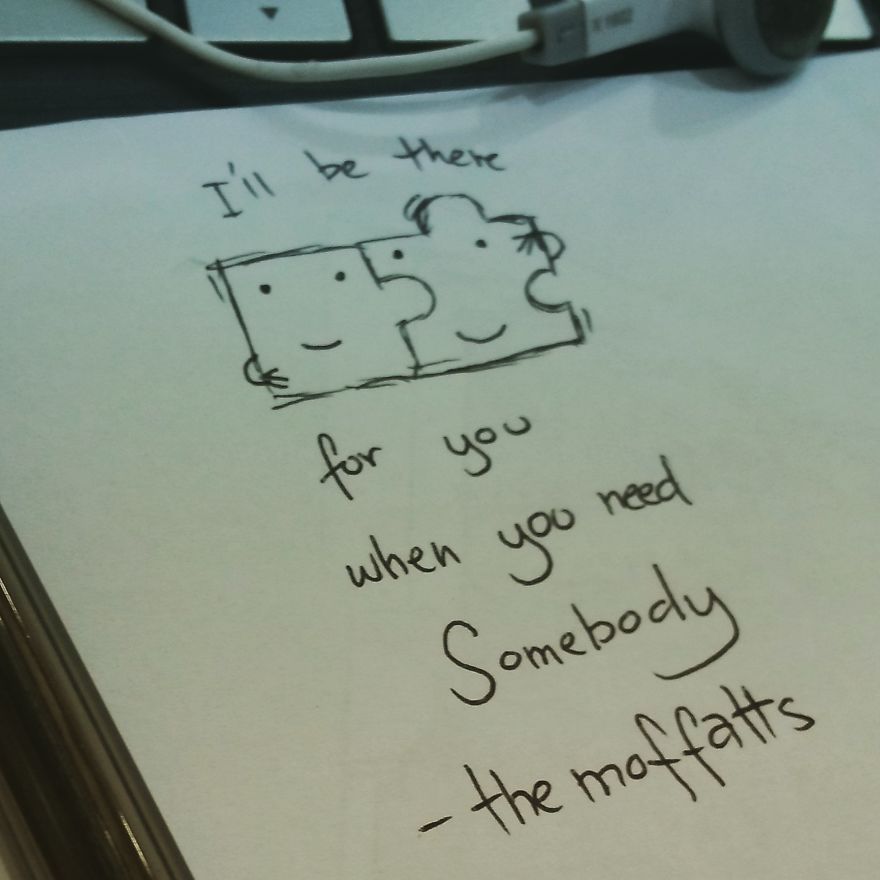 I'll be there
for you
when you need
Somebody
- the moffatts